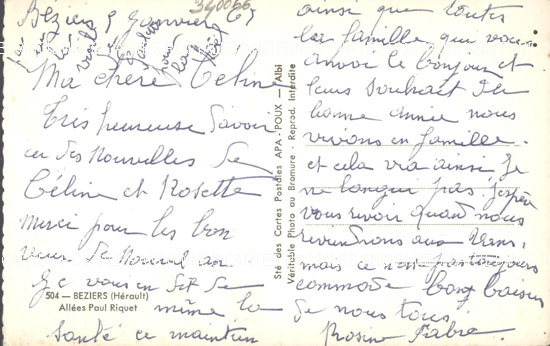 Béziers 9 Janvier 67
340066
Ma chère Céline
très heureuse d'avoir
eu des nouvelles de
Céline et Rosette
merci pour les bon
vœux de Nouvel an
Je vous en dit de
même la
santé ce maintien
504 — BEZIERS (Hérault)
Allées Paul Riquet
Sté des Cartes Postales APA-POUX — Albi
Véritable Photo au Bromure - Reprod. Interdite
ainsi que toutes
la famille qui vous
envoi le bonjour et
leurs souhait de
bonne année nous
vivions en famille.
et cela va ainsi, Je
ne langui pas, J'espère
vous revoir quand nous
reviendrons aux
mais ce n'est pas toujours
commode bons baisers
de nous tous
Rosine Fabre